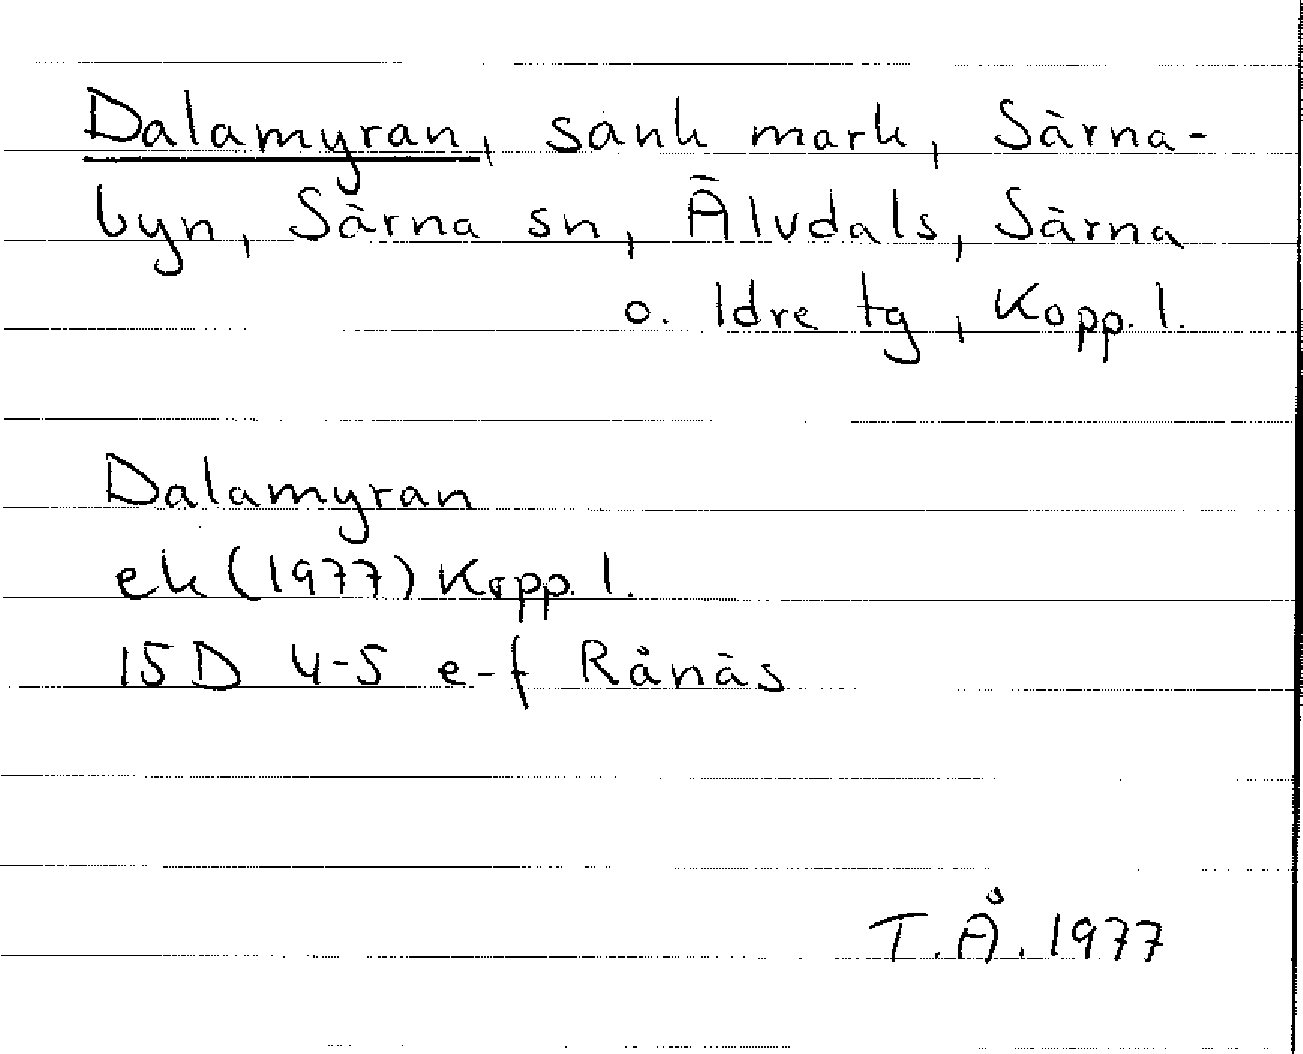 Dalamyran, sank mark, Särna-
byn, Särna sn, Älvdals, Särna
o. Idre tg, Kopp. l.
Dalamyran
ek (1977) Kopp. l.
15D 4-5 e-f Rånäs
T.Å. 1977